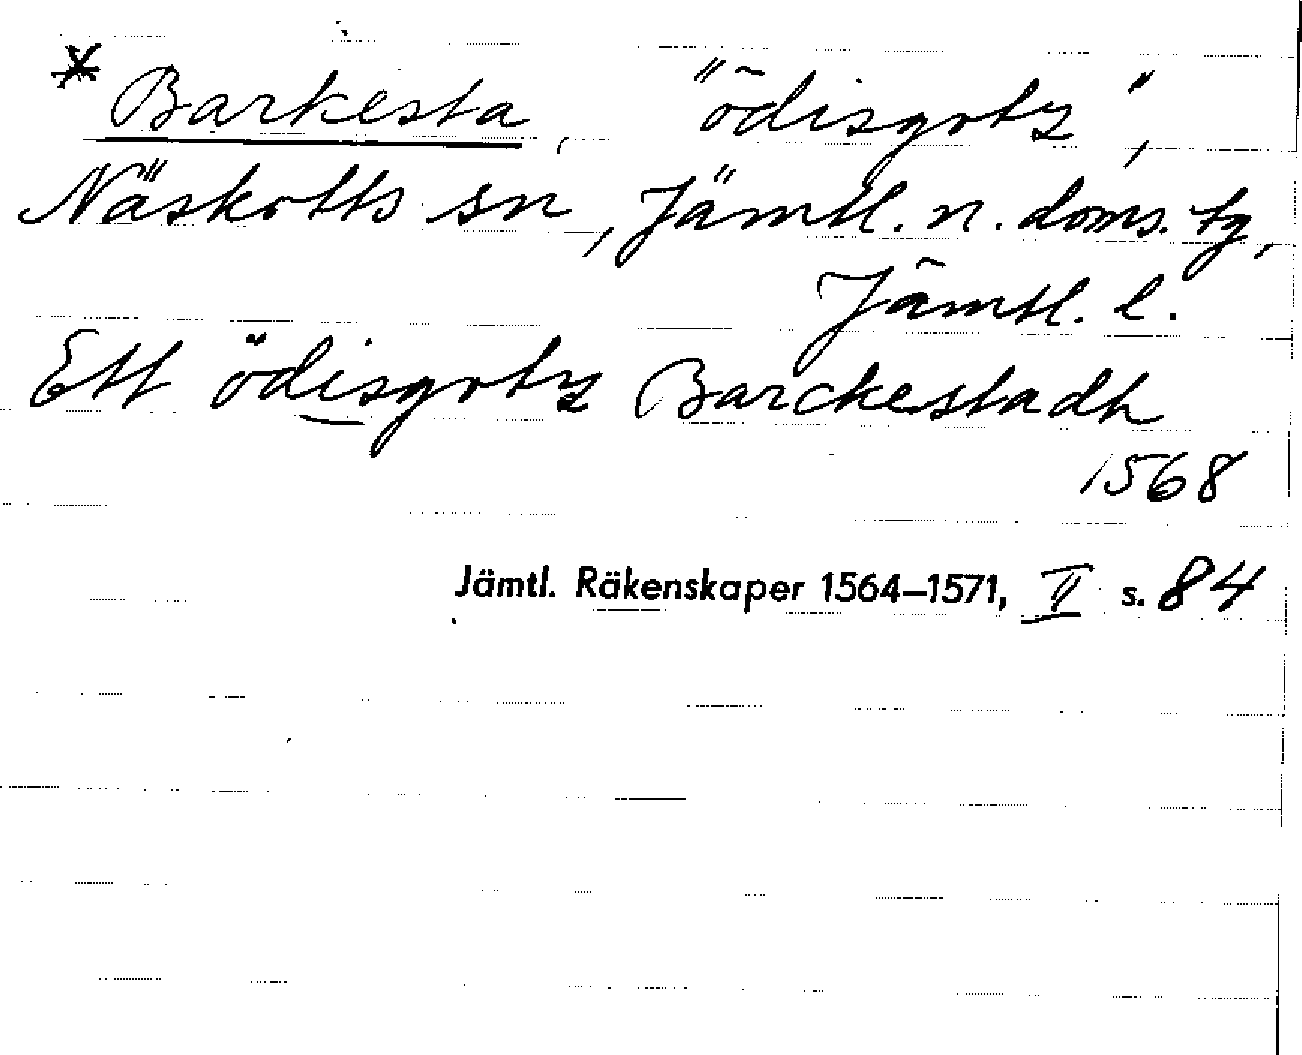 * Barkesta, "ödisgotz",
Näskotts sn, Jämtl. n. doms. tg,
Jämtl. l.
Ett ödisgotz Barckestadh
1568
Jämtl. Räkenskaper 1564–1571, II s. 84